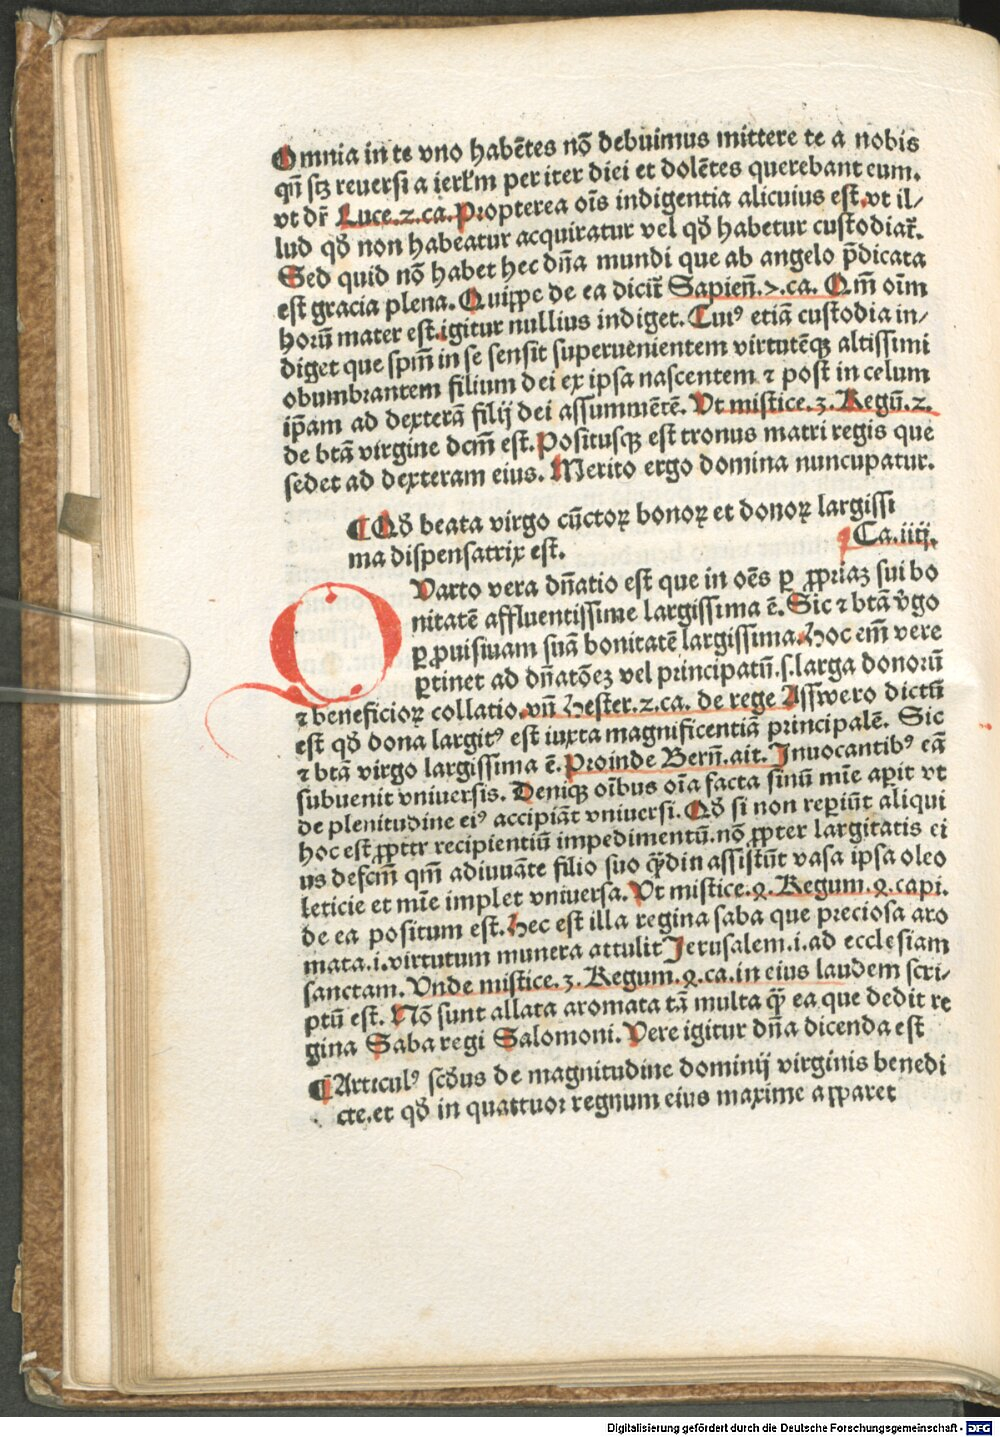 Omnia in te vno habētes nō debuimus mittere te a nobis
qñ sꝫ reuersi a ierłm per iter diei et dolētes querebant eum.
vt dr̄ Luce.2.ca. Propterea oīs indigentia alicuius est. vt il⸗
lud qđ non habeatur acquiratur vel qđ habetur custodiat̄.
Sed quid nō habet hec dña mundi que ab angelo p̄dicata
est gracia plena. Quippe de ea dicit̄ Sapieñ.7.ca. Qm̄ oīm
horū mater est. igitur nullius indiget. Cuiꝰ etiā custodia in⸗
diget que spm̄ in se sensit superuenientem virtutēqꝫ altissimi
obumbrantem filium dei ex ipsa nascentem ⁊ post in celum
ip̄am ad dexterā filij dei assummētē. Vt mistice.3.Regū.2.
de btā virgine dcm̄ est. Positusqꝫ est tronus matri regis que
sedet ad dexteram eius. Merito ergo domina nuncupatur.
¶ Qđ beata virgo cūctoꝝ bonoꝝ et donoꝝ largissi
ma dispensatrix est. ¶ Ca.iiij.
QVarto vera dñatio est que in oēs ꝑ ꝓpriaꝫ sui bo
nitatē affluentissime largissima ē. Sic ⁊ btā v̄go
ꝑ ꝓuisiuam suā bonitatē largissima. Hoc em̄ vere
ꝑtinet ad dñatōeꝫ vel principatū.s.larga donorū
⁊ beneficioꝝ collatio. vñ Hester.2.ca. de rege Asswero dictū
est qđ dona largitꝰ est iuxta magnificentiā principalē. Sic
⁊ btā virgo largissima ē. Proinde Berñ.ait. Inuocantibꝰ eā
subuenit vniuersis. Deniqꝫ oībus oīa facta sinū mīe aꝑit vt
de plenitudine eiꝰ accipiāt vniuersi. Qđ si non reꝑiūt aliqui
hoc est ꝓpter recipientiū impedimentū. nō ꝓpter largitatis ei
us defcm̄ qm̄ adiuuāte filio suo qͣ̄din assistūt vasa ipsa oleo
leticie et mīe implet vniuersa. Vt mistice.4.Regum.4.capi.
de ea positum est. Hec est illa regina saba que preciosa aro
mata.i.virtutum munera attulit Jerusalem.i.ad ecclesiam
sanctam. Vnde mistice.3.Regum.4.ca.in eius laudem scri⸗
ptū est. Nō sunt allata aromata tā multa qͣ̄ ea que dedit re
gina Saba regi Salomoni. Vere igitur dña dicenda est
¶ Articulꝰ scđus de magnitudine dominij virginis benedi
cte. et qđ in quattuor regnum eius maxime apparet
Digitalisierung gefördert durch die Deutsche Forschungsgemeinschaft - DFG